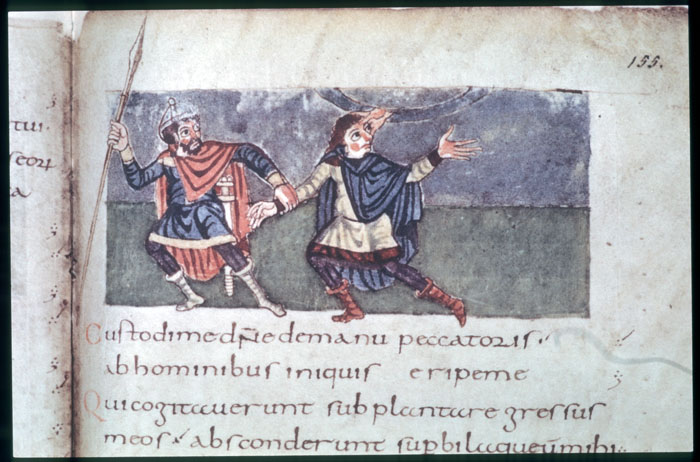 155.
tui.
Custodi me dn̄e de manu peccatoris.
ab hominibus iniquis eripe me
Qui cogitauerunt subplantare gressus
meos. absconderunt supbi laqueū mihi.